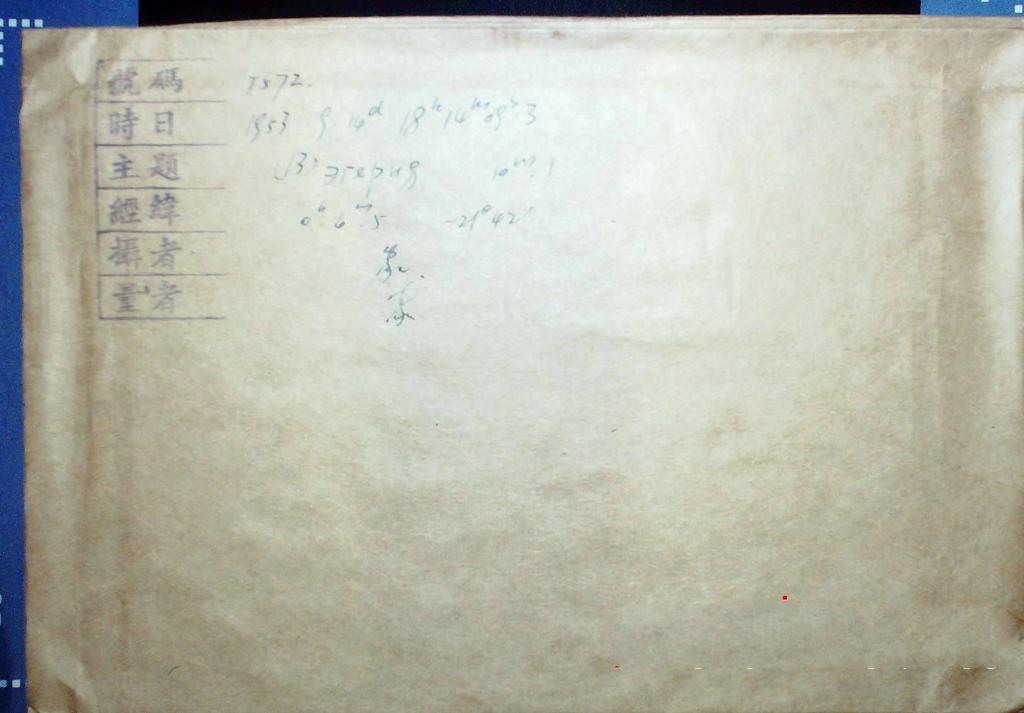 號碼 TS72.
時日 1953 9. 14ᵈ 18ʰ 14ᵐ 09ˢ.3
主題 (3) 10ᵐ.1
經緯 0ʰ 6ᵐ.5 -21° 42'
攝者
量者